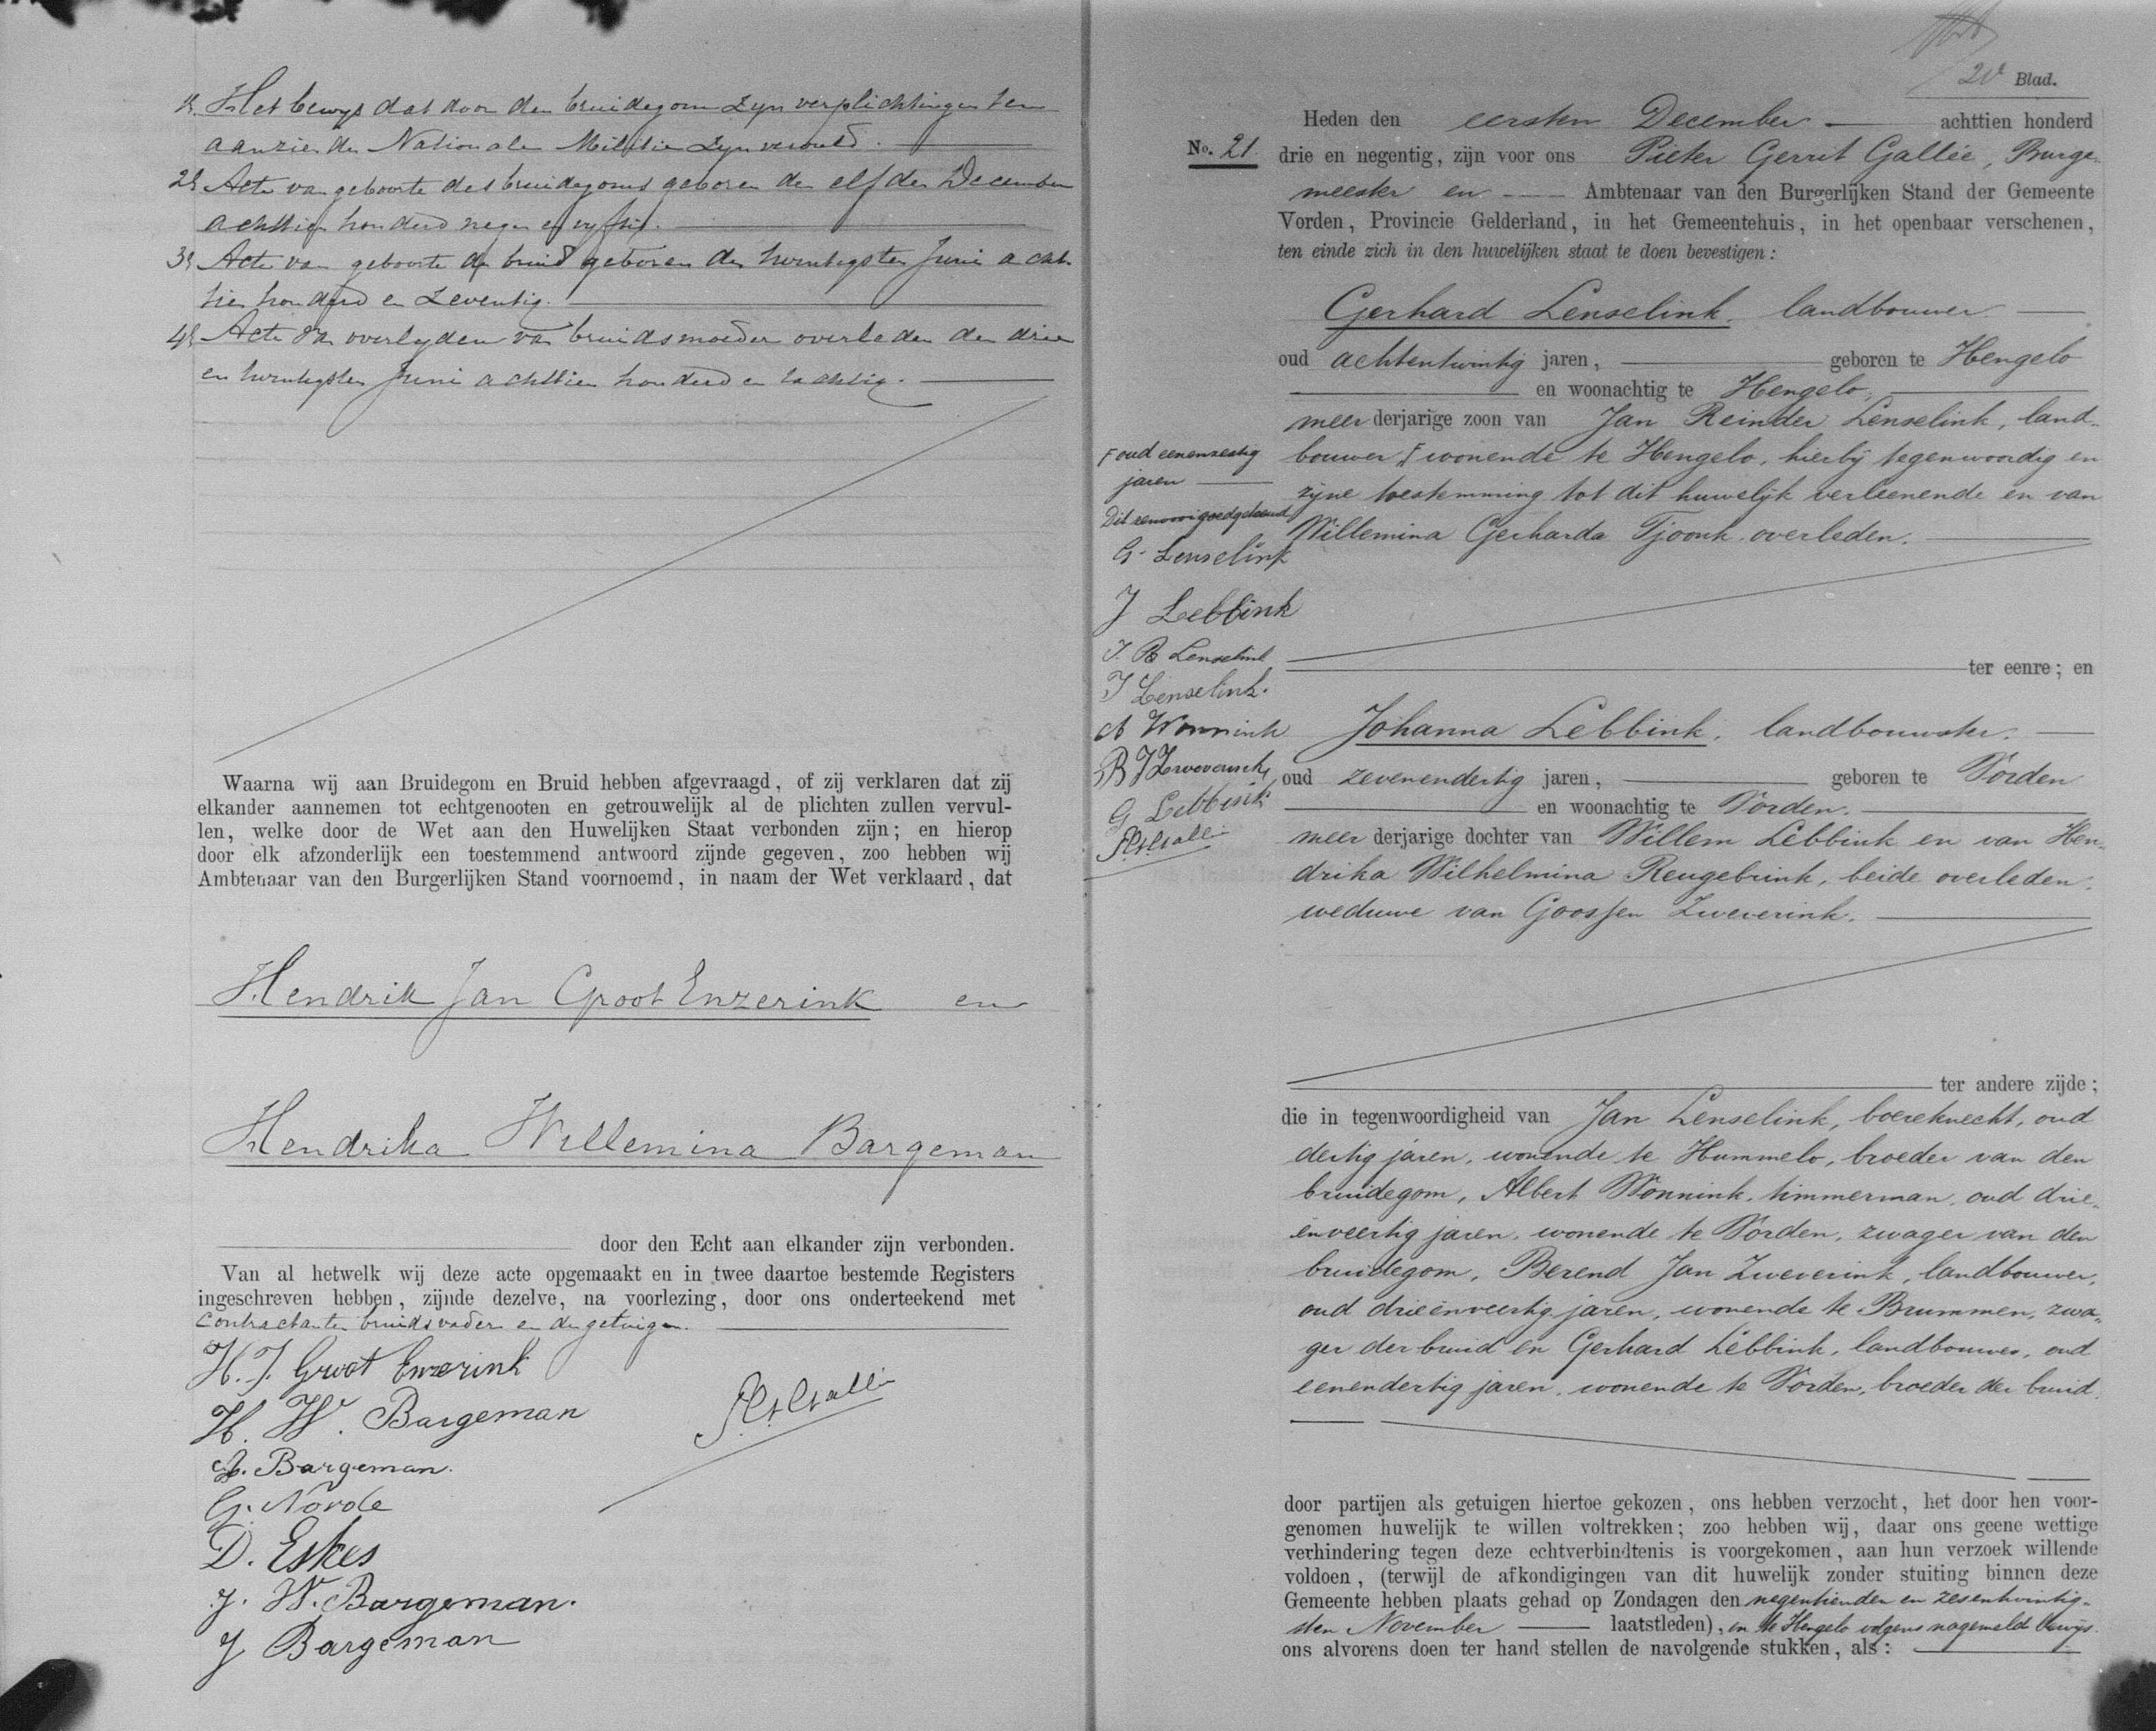 1e. Het bewijs dat door den bruidegom zijn verplichtingen ten
aanzien der Nationale Militie zijn vervuld.
2e Acte van geboorte des bruidegoms geboren den elfden December
achttien honderd negen en vyftig.
3e Acte van geboorte der bruid geboren den twintigsten Juni acht
tien honderd en zeventig.
4e Acte van overlyden van bruidsmoeder overleden den drie
en twintigsten Juni achttien honderd en tachtig.
Waarna wij aan Bruidegom en Bruid hebben afgevraagd, of zij verklaren dat zij
elkander aannemen tot echtgenooten en getrouwelijk al de plichten zullen vervul-
len, welke door de Wet aan den Huwelijken Staat verbonden zijn; en hierop
door elk afzonderlijk een toestemmend antwoord zijnde gegeven, zoo hebben wij
Ambtenaar van den Burgerlijken Stand voornoemd, in naam der Wet verklaard, dat
Hendrik Jan Groot Enzerink en
Hendrika Willemina Bargeman
door den Echt aan elkander zijn verbonden.
Van al hetwelk wij deze acte opgemaakt en in twee daartoe bestemde Registers
ingeschreven hebben, zijnde dezelve, na voorlezing, door ons onderteekend met
Contractanten bruidsvader en de getuigen.
H. J. Groot Enzerink
H. W. Bargeman
A. Bargeman.
G. Norde
D. Eskes
J. W. Bargeman.
J Bargeman
P.G. Gallée
20 Blad.
No. 21
Heden den eersten December achttien honderd
drie en negentig, zijn voor ons Pieter Gerrit Gallée, Burge-
meester en Ambtenaar van den Burgerlijken Stand der Gemeente
Vorden, Provincie Gelderland, in het Gemeentehuis, in het openbaar verschenen,
ten einde zich in den huwelijken staat te doen bevestigen:
Gerhard Lenselink, landbouwer
oud achtentwintig jaren, geboren te Hengelo
en woonachtig te Hengelo,
meerderjarige zoon van Jan Reinder Lenselink, land-
bouwer, F wonende te Hengelo, hierbij tegenwoordig en
zijne toestemming tot dit huwelijk verleenende en van
Willemina Gerharda Tjoonk, overleden.
F oud eenenzestig
jaren
Dit renvooi goedgekeurd
G. Lenselink
J Lebbink
J. R Lenselink
J Lenselink.
A Wonnink
B J Zweverink
G Lebbink
P.G. Gallée
ter eenre; en
Johanna Lebbink, landbouwster.
oud zevenendertig jaren, geboren te Vorden
en woonachtig te Vorden.
meerderjarige dochter van Willem Lebbink en van Hen-
drika Wilhelmina Reugebrink, beide overleden.
weduwe van Goossen Zweverink.
ter andere zijde;
die in tegenwoordigheid van Jan Lenselink, boereknecht, oud
dertig jaren, wonende te Hummelo, broeder van den
bruidegom, Albert Wonnink, timmerman, oud drie-
ënveertig jaren, wonende te Vorden, zwager van den
bruidegom, Berend Jan Zweverink, landbouwer,
oud drieënveertig jaren, wonende te Brummen, zwa-
ger der bruid en Gerhard Lebbink, landbouwer, oud
eenendertig jaren, wonende te Vorden, broeder der bruid.
door partijen als getuigen hiertoe gekozen, ons hebben verzocht, het door hen voor-
genomen huwelijk te willen voltrekken; zoo hebben wij, daar ons geene wettige
verhindering tegen deze echtverbindtenis is voorgekomen, aan hun verzoek willende
voldoen, (terwijl de afkondigingen van dit huwelijk zonder stuiting binnen deze
Gemeente hebben plaats gehad op Zondagen den negentienden en zesentwintig-
sten November laatstleden), en te Hengelo volgens nagemeld bewijs.
ons alvorens doen ter hand stellen de navolgende stukken, als: